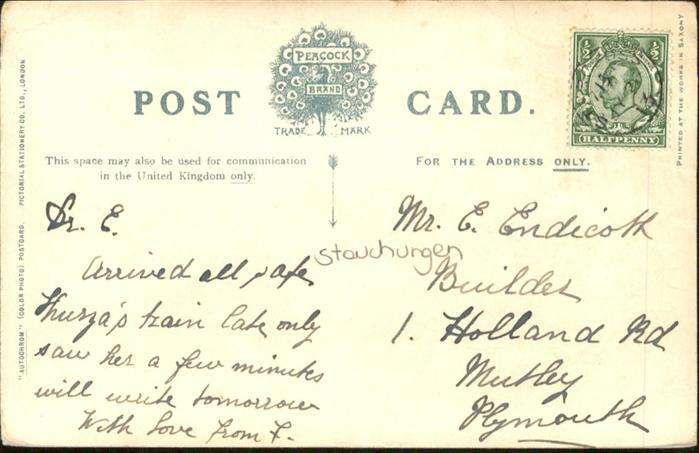 PEACOCK
BRAND
TRADE MARK
POST CARD.
HALFPENNY
This space may also be used for communication
in the United Kingdom only.
FOR THE ADDRESS ONLY.
"AUTOCHROM" (COLOR PHOTO) POSTCARD. PICTORIAL STATIONERY CO. LTD., LONDON
PRINTED AT THE WORKS IN SAXONY
Dr. E.
Arrived all safe
Thurza's train late only
saw her a few minutes
will write tomorrow
With love from F.
Mr. E. Endicott
Builder
1. Holland Rd
Mutley
Plymouth